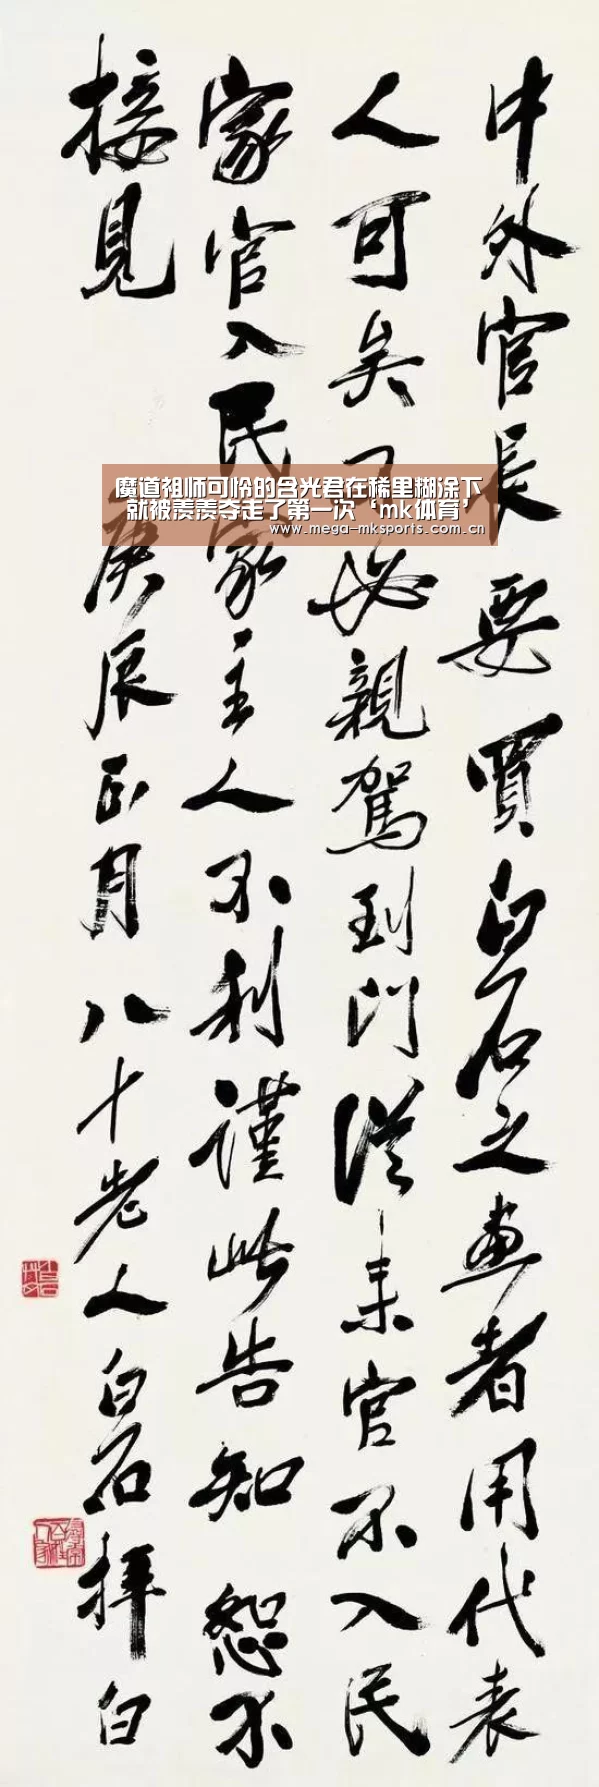 中外官長要買白石之画者用代表
人可矣不必親駕到門從來官不入民
家官入民家主人不利謹此告知恕不
接見
庚辰正月八十老人白石拜白
魔道祖师可怜的含光君在稀里糊涂下
就被羡羡夺走了第一次‘mk体育’
www.mega-mksports.com.cn